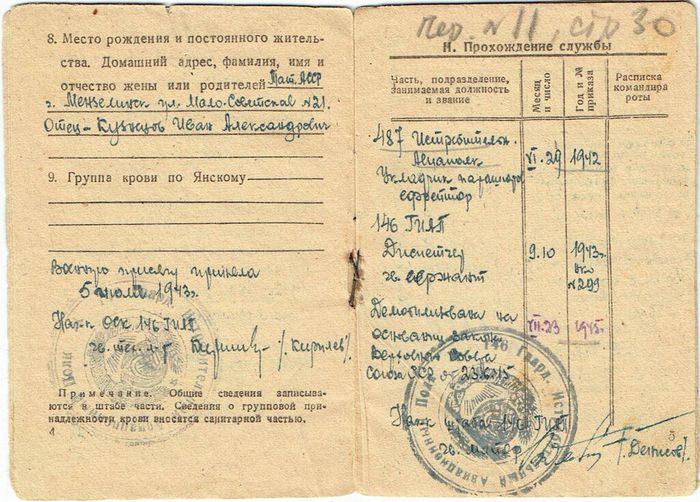 8. Место рождения и постоянного житель-
ства. Домашний адрес, фамилия, имя и
отчество жены или родителей Тат. АССР
г. Мензелинск ул. Мало-Советская №21.
Отец – Кузнецов Иван Александрович
9. Группа крови по Янскому
Военную присягу приняла
5 1943г.
Нач. 146 ГИАП
гв.
Примечание. Общие сведения записыва-
ются в штабе части. Сведения о групповой при-
надлежности крови вносятся санитарной частью.
4
пер. №11, стр 30
II. Прохождение службы
Часть, подразделение, занимаемая должность и звание
Месяц и число
Год и № приказа
Расписка командира роты
487 Истребительн.
Авиаполк VI.29 1942
Укладчик парашюта
ефрейтор
146 ГИАП
Диспетчер 9.10 1943г.
гв. сержант №299
Демобилизвана на
основании закона VII.23 1945г.
Верховного Совета
Союза ССР от 23.
Нач штаба 146 ГИАП
гв. майор /Денисов/
5
146 Гвард. Истребительный Авиационный Полк